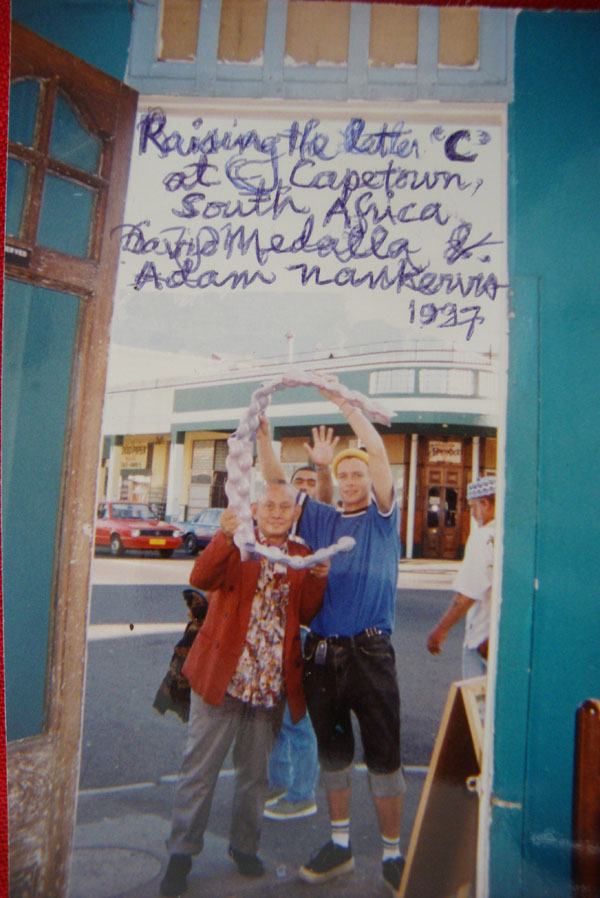 Raising the letter "C"
at Capetown,
South Africa
David Medalla &.
Adam Nankervis
1997